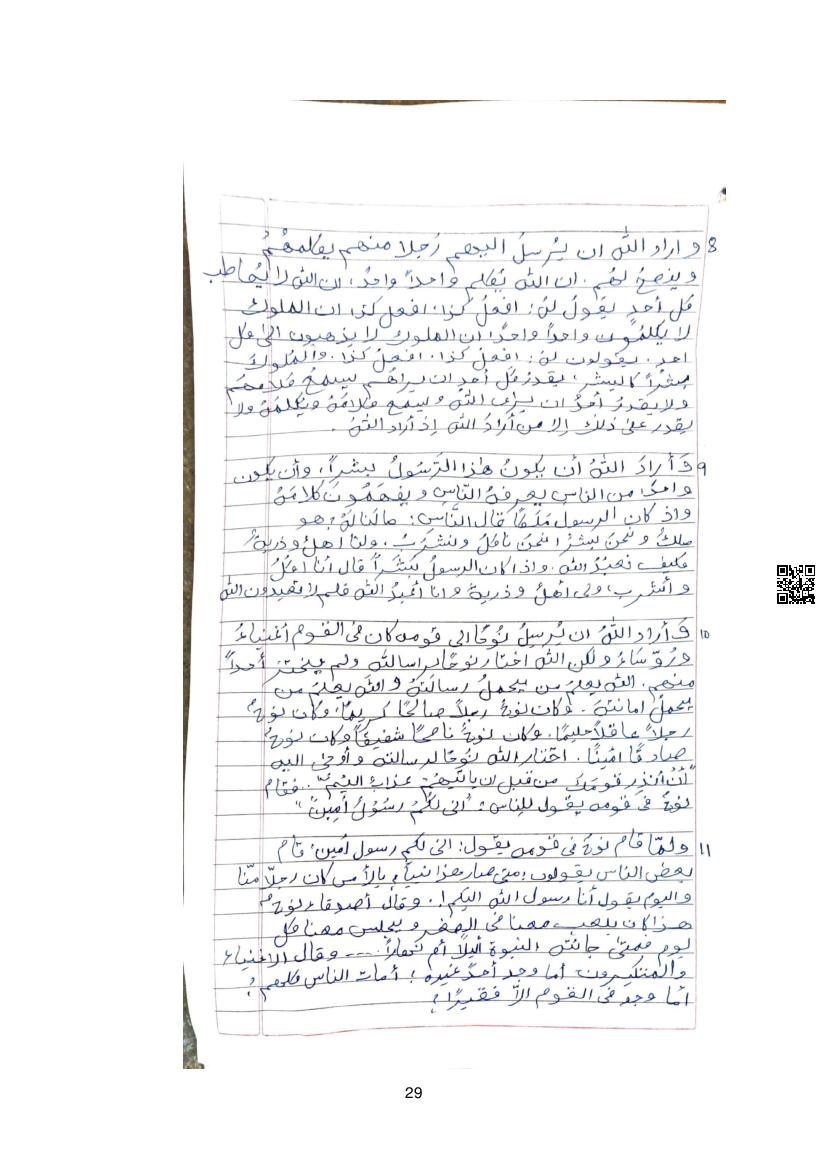 8 و اراد اللّٰه ان يُرسلُ اليهم رُجلا منهم يكلمهُمُ
وينصحُ لهُم. ان اللّٰه يُكلم واحداً واحدُ، ان اللّٰه لا يُخاطب
كل أحدٍ يقولُ لهُ: افعلُ كذا، افعل كذا، ان الملوك
لا يكلمُون واحداً واحدًا ان الملوك لا يذهبون الىٰ كل
احدٍ. يقولون لهُ: افعلُ كذا. افعلُ كذا. والمُلوك
بشراً كالبشر، يقدرُ كُل أحدٍ ان يراهُم يسمعُ كلامهُم
ولا يقدرُ أحدٌ ان يرىٰ اللّٰه و يسمع كلامَهُ ويُكلمهُ ولا
يقدر علىٰ ذلك إلا من أرادُ اللّٰه إذ أراد اللّٰهُ.
٩ فَأرادَ اللّٰهُ أن يكونُ هٰذا الرَّسَولُ بشراً، وأن يكون
واحدًا من الناس يعرفهُ النّاسِ ويفهَمُونَ كلامَهُ
واذ كان الرسول مَلكًا قال النَّاسِ: مالنالهُ؟ هو
ملكٌ ونحن بشرٌ! نحن نأكلُ ونشربُ، ولنا اهلٌ وذريةٌ
فكيف نعبُدُ اللّٰه. واذا كان الرسولُ بَشَراً قال أنا اٰكلُ
و أشرب، ولى أهلُ وذريةٌ وانا أعبدُ اللّٰه فلم لا تعبدون اللّٰه
١٠ فَأرادَ اللّٰهُ ان يُرسلُ نُوحًا الى قومه كان فى القوم أغنياءُ
ورُوّساءُ ولكن اللّٰه اختار نوحًا لرسالته ولم يختر أحداً
منهم. اللّٰه يعلم من يحملُ رسالتهُ واللّٰه يعلم من
يحملُ امانتهُ. وكان نوحٌ رجلاً صالحًا كريمًا، وكان نوحٌ
رجلاً عاقلاً حليمًا. وكان نوحٌ ناصحًا شفيقًا وكان نوحٌ
صادقًا امينًا. اختار اللّٰه نوحًا لرسالته وأوحىٰ اليه
"أنْ أنذِر قومَك من قبل ان ياتيهُم عذابُ اليمُ". فقام
نوحٌ فى قومه يقول للناس: "انى لكُمُ رسُوُلٌ أمِينٌ"
١١ ولمّا قام نوحٌ فى قومه يقول: انى لكم رسول أمين، قام
بعض الناس يقولون؛ متى صار هذا نبياً؟ بالأمس كان رجلًا منّا
واليوم يقول أنا رسول اللّٰه اليكم!. وقال أصدقاء نوحٌ
هذا كان يلعب معنا فى الصغر ويجلس معنا كل
يوم فمتىٰ جائته النبوة ليلًا أم نهاراً.... وقال الاغنياء
والمُتكبّرون أما وجد أحدٌ غيره؛ أمات الناس كلهم؟!
أما وجد فى القوم الاّ فقيرًا؟!
29